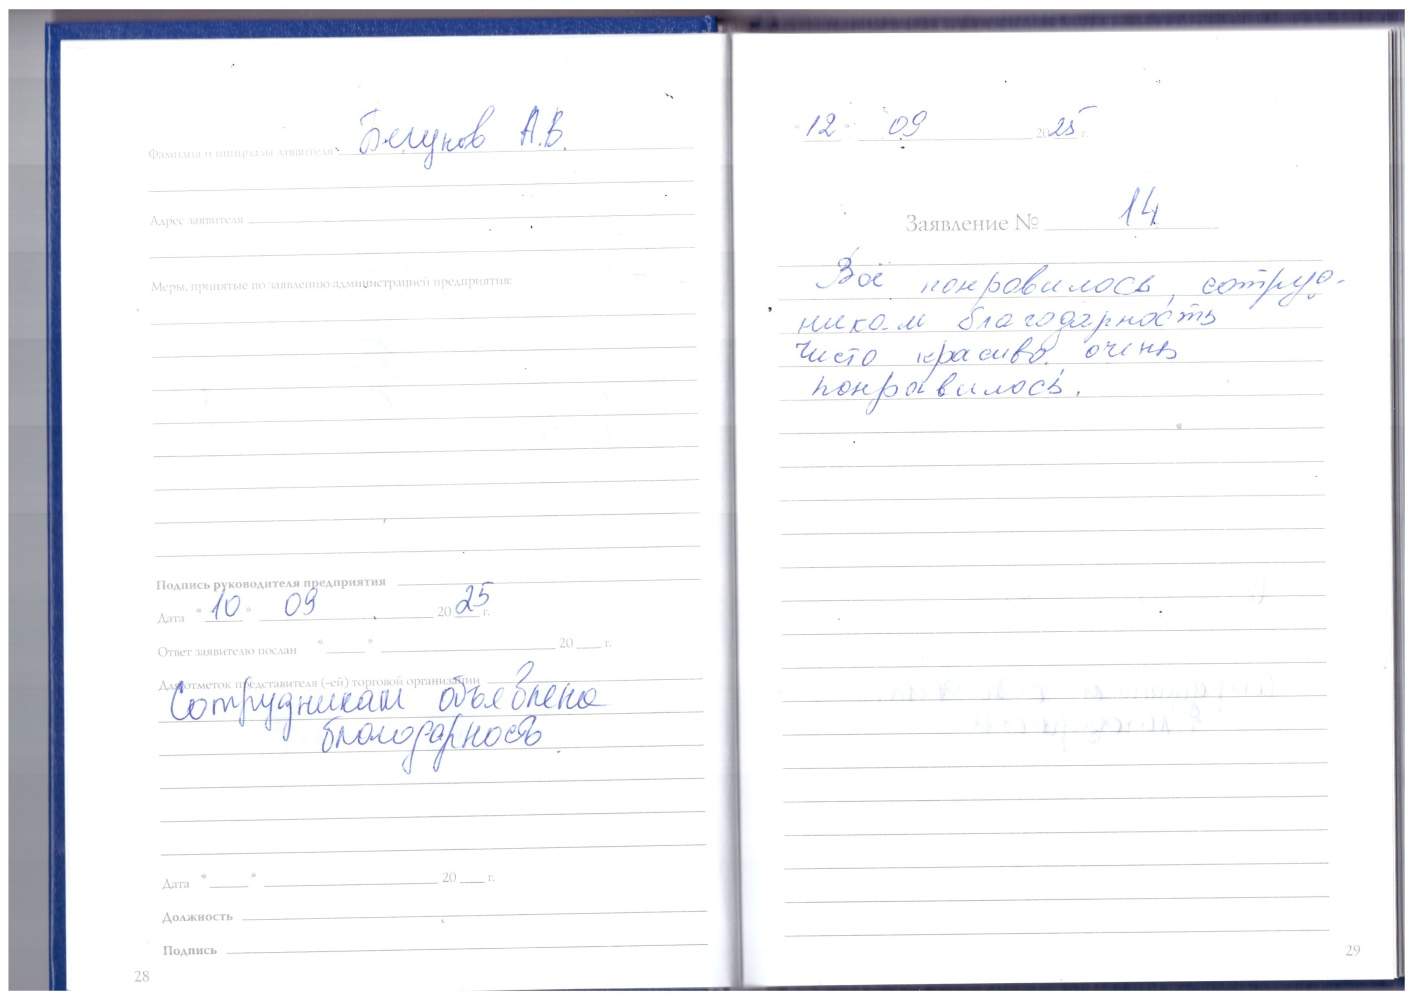 Фамилия и инициалы заявителя Бегунов А.В.
Адрес заявителя
Меры, принятые по заявлению администрацией предприятия:
Подпись руководителя предприятия
Дата "10" 09 2025 г.
Ответ заявителю послан "___" ___ 20___ г.
Для отметок представителя (-ей) торговой организации
Сотрудникам объявлена
благодарность
Дата "___" ___ 20___ г.
Должность
Подпись
28
"12" 09 2025 г.
Заявление № 14
Всё понравилось, сотруд-
никам благодарность
Чисто красиво очень
понравилось.
29